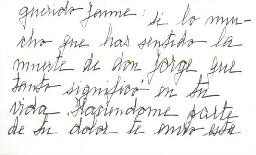 querido Jaime: si lo mu-
cho que has sentido la
muerte de don Jorge que
tanto significó en tu
vida. Haciendome parte
de tu dolor te envio este